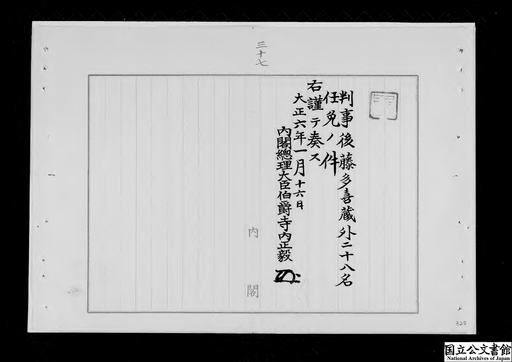 三十七
判事後藤多喜蔵外二十八名
任免ノ件
右謹テ奏ス
大正六年一月十六日
内閣總理大臣伯爵寺内正毅
内閣
325
国立公文書館
National Archives of Japan